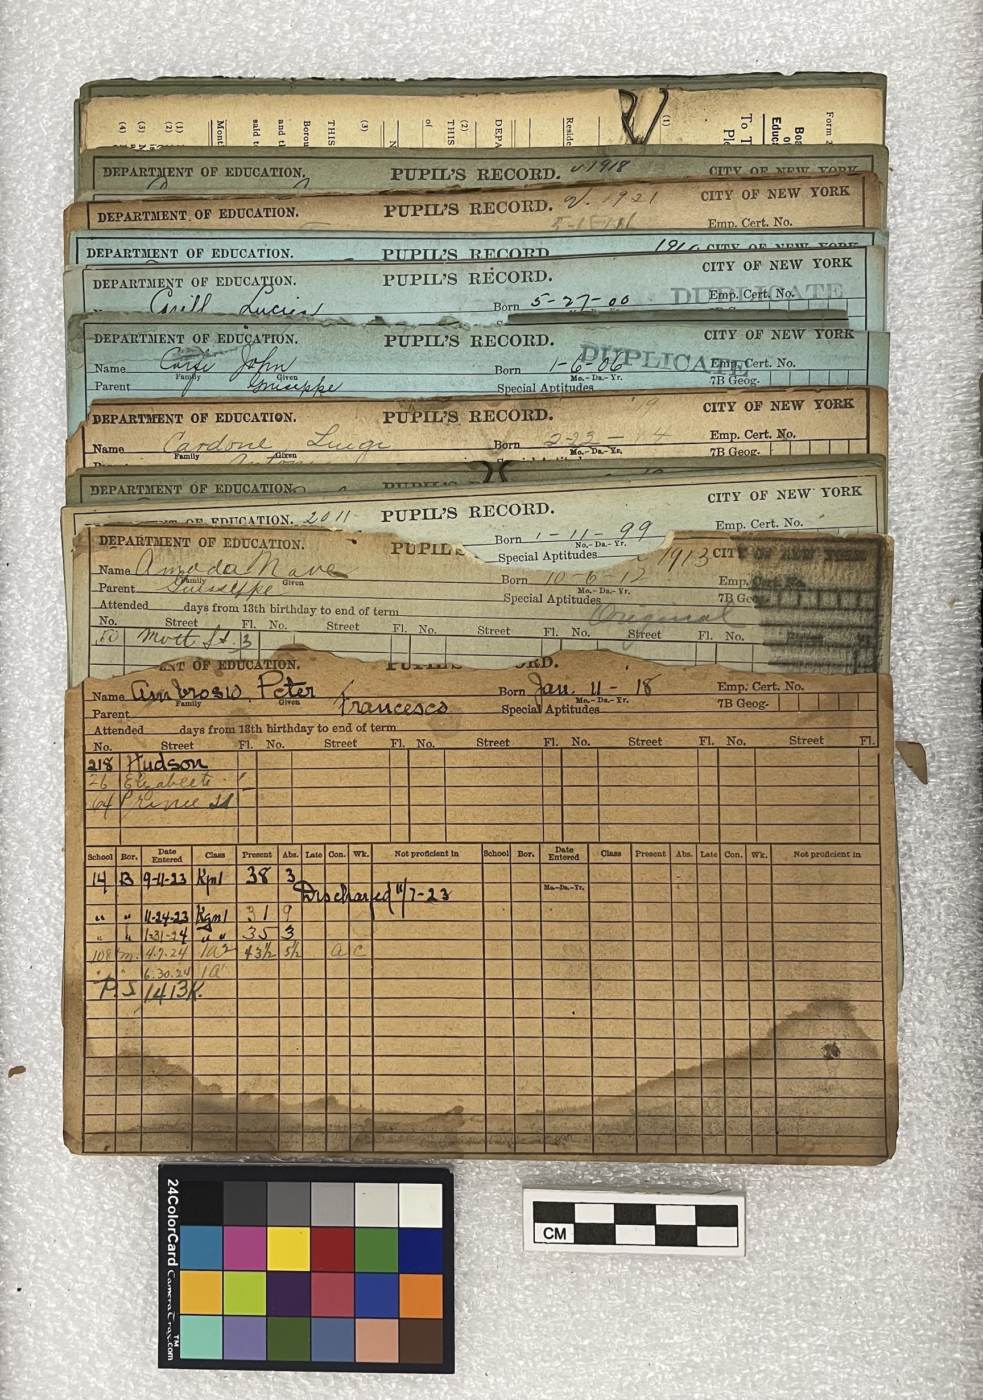 Form
(1)
(4) (3) (2) (1)
Mont
said t
and t
Borou
THIS
(3)
of
THIS
(2)
DEPA
Reside
To T
Educa
DEPARTMENT OF EDUCATION. PUPIL'S RECORD. 1918 CITY OF NEW YORK
DEPARTMENT OF EDUCATION. PUPIL'S RECORD. 1921 CITY OF NEW YORK
Emp. Cert. No.
DEPARTMENT OF EDUCATION. PUPIL'S RECORD CITY OF NEW YORK
DEPARTMENT OF EDUCATION. PUPIL'S RECORD. CITY OF NEW YORK
Lucien Born 5-27-00 DUPLICATE Emp. Cert. No.
DEPARTMENT OF EDUCATION. PUPIL'S RECORD. CITY OF NEW YORK
Name John Born 1-6-06 DUPLICATE Emp. Cert. No.
Family Given Mo.-Da.-Yr.
Parent Giuseppe Special Aptitudes 7B Geog.
DEPARTMENT OF EDUCATION. PUPIL'S RECORD. CITY OF NEW YORK
Name Cardone Luigi Born Emp. Cert. No.
Family Given Mo.-Da.-Yr. 7B Geog.
DEPARTMENT OF EDUCATION. PUPIL'S RECORD.
EDUCATION. 2011 PUPIL'S RECORD. CITY OF NEW YORK
Born 1-11-99 Emp. Cert. No.
Mo.-Da.-Yr.
Special Aptitudes
DEPARTMENT OF EDUCATION. PUPIL'S 1913 CITY OF NEW YORK
Name Born 10-6-12 Emp.
Family Given Mo.-Da.-Yr.
Parent Guiseppe Special Aptitudes 7B Geo
Attended days from 13th birthday to end of term Original
No. Street Fl. No. Street Fl. No. Street Fl. No. Street Fl. No.
50 Mott St. 3
ENT OF EDUCATION. PUPIL'S RD.
Name Ambrosio Peter Born Jan. 11-18 Emp. Cert. No.
Family Given Mo.-Da.-Yr.
Parent Francesco Special Aptitudes 7B Geog.
Attended days from 13th birthday to end of term
No. Street Fl. No. Street Fl. No. Street Fl. No. Street Fl. No. Street Fl.
218 Hudson
26
64 Prince St
School Bor. Date Entered Class Present Abs. Late Con. Wk. Not proficient in School Bor. Date Entered Class Present Abs. Late Con. Wk. Not proficient in
Mo.-Da.-Yr.
14 B 9-11-23 Kgn1 38 3
Discharged 11/7-23
" " 11-24-23 Kgn1 31 9
" " 1-31-24 " " 35 3
108 m. 4.7.24 1a2 43½ 5½ a c
" " 6.30.24 1a
P.S 141 3K.
24ColorCard CameraTrax.com™
CM